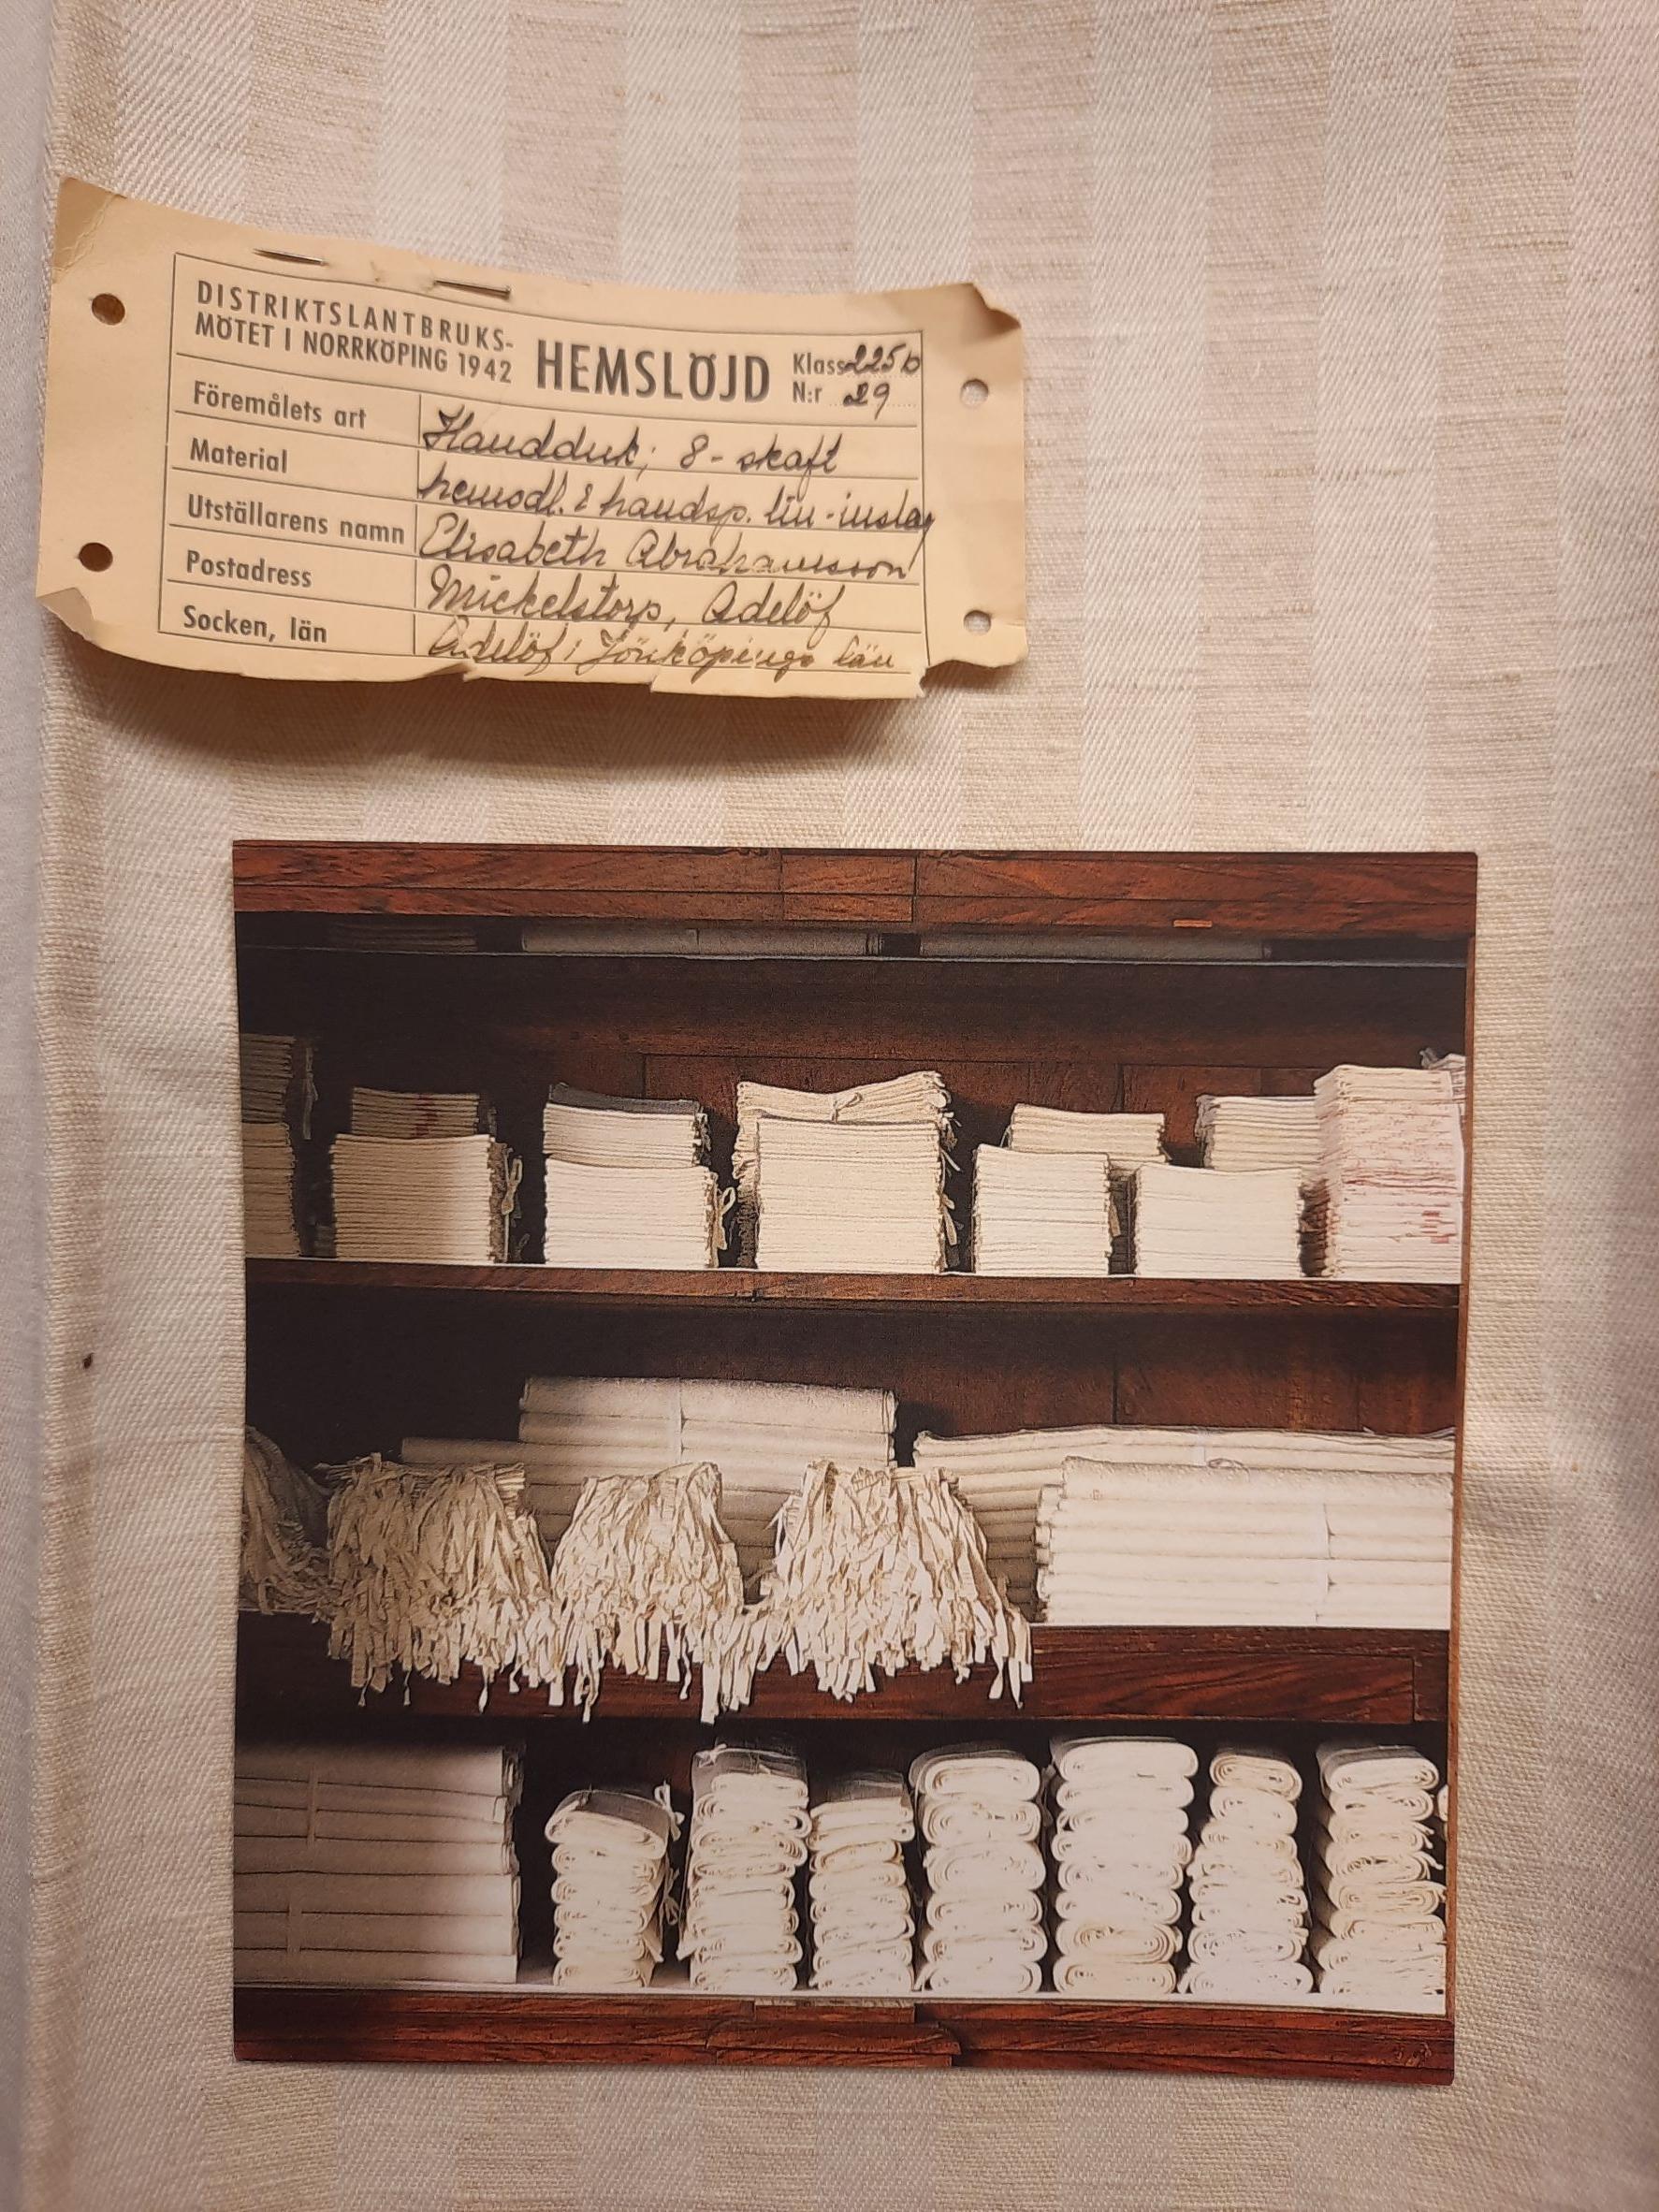 DISTRIKTSLANTBRUKS-
MÖTET I NORRKÖPING 1942
HEMSLÖJD
Klass 225 b
N:r 29
Föremålets art Handduk; 8-skaft
Material hemodl. & handsp. lin-inslag
Utställarens namn Elisabeth Abrahamsson
Postadress Mickelstorp, Adelöf
Socken, län Adelöf; Jönköpings län